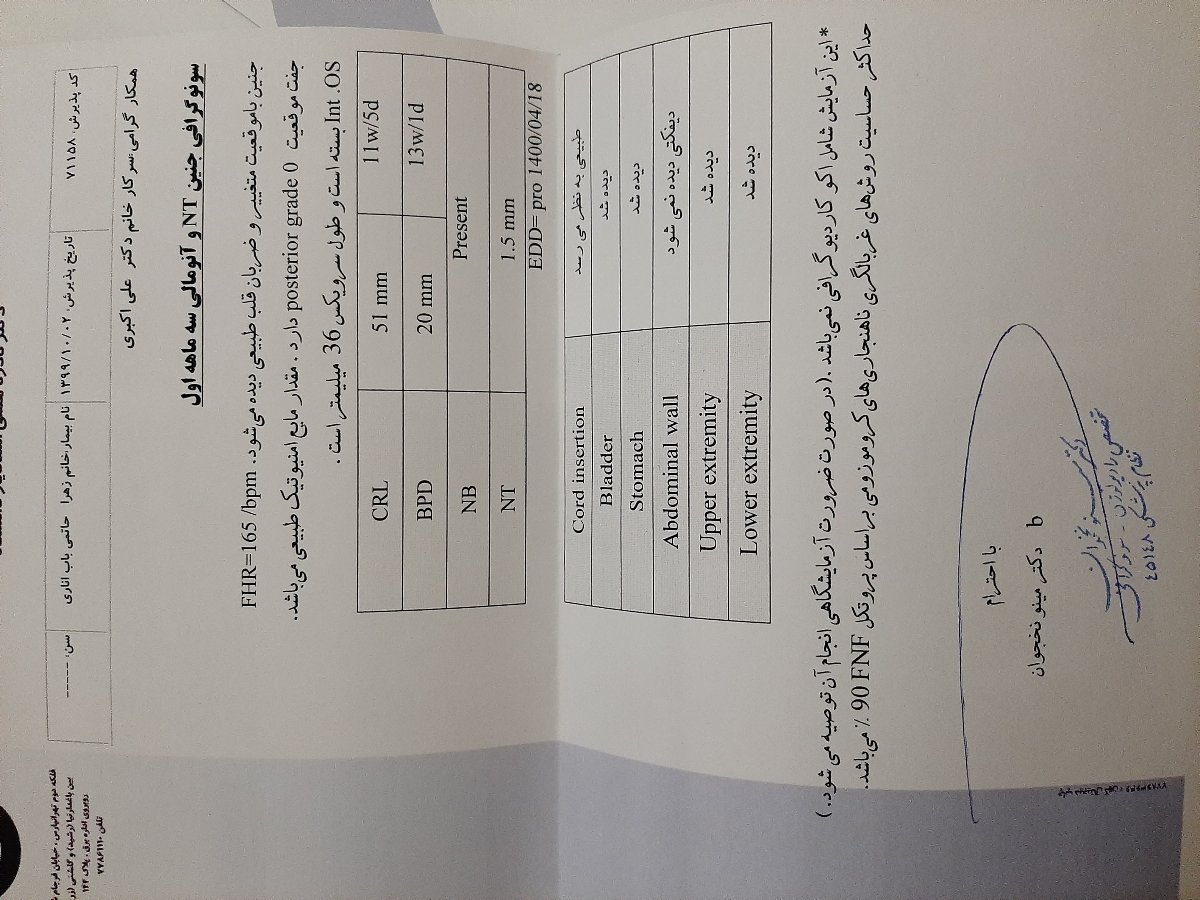 فلکه دوم تهرانپارس ، خیابان فرجام
روبروی اداره برق ، پلاک ۱۴۴
تلفن ۷۷۸۶۱۱۱۰
کد پذیرش: ۷۱۱۵۸ تاریخ پذیرش: ۱۳۹۹/۱۰/۰۲ نام بیمار: خانم زهرا حاتمی باب اناری سن: ------
همکار گرامی: سرکار خانم دکتر علی اکبری
سونوگرافی جنین NT و آنومالی سه ماهه اول
جنین با موقعیت متغییر و ضربان قلب طبیعی دیده می‌شود. FHR=165 /bpm
جفت موقعیت posterior grade 0 دارد . مقدار مایع امنیوتیک طبیعی می‌باشد.
Int .OS بسته است و طول سرویکس 36 میلیمتر است .
CRL 51 mm 11w/5d
BPD 20 mm 13w/1d
NB Present
NT 1.5 mm
EDD= pro 1400/04/18
Cord insertion طبیعی به نظر می رسد
Bladder دیده شد
Stomach دیده شد
Abdominal wall دیفکتی دیده نمی شود
Upper extremity دیده شد
Lower extremity دیده شد
*این آزمایش شامل اکو کاردیوگرافی نمی‌باشد .(در صورت ضرورت آزمایشگاهی انجام آن توصیه می شود. )
حداکثر حساسیت روش‌های غربالگری ناهنجاری‌های کروموزومی براساس پروتکل FNF 90 ٪ می‌باشد.
با احترام
دکتر مینو نخجوان b
دکتر مینو نخجوان
متخصص رادیولوژی - سونوگرافی
نظام پزشکی ۴۵۱۴۸